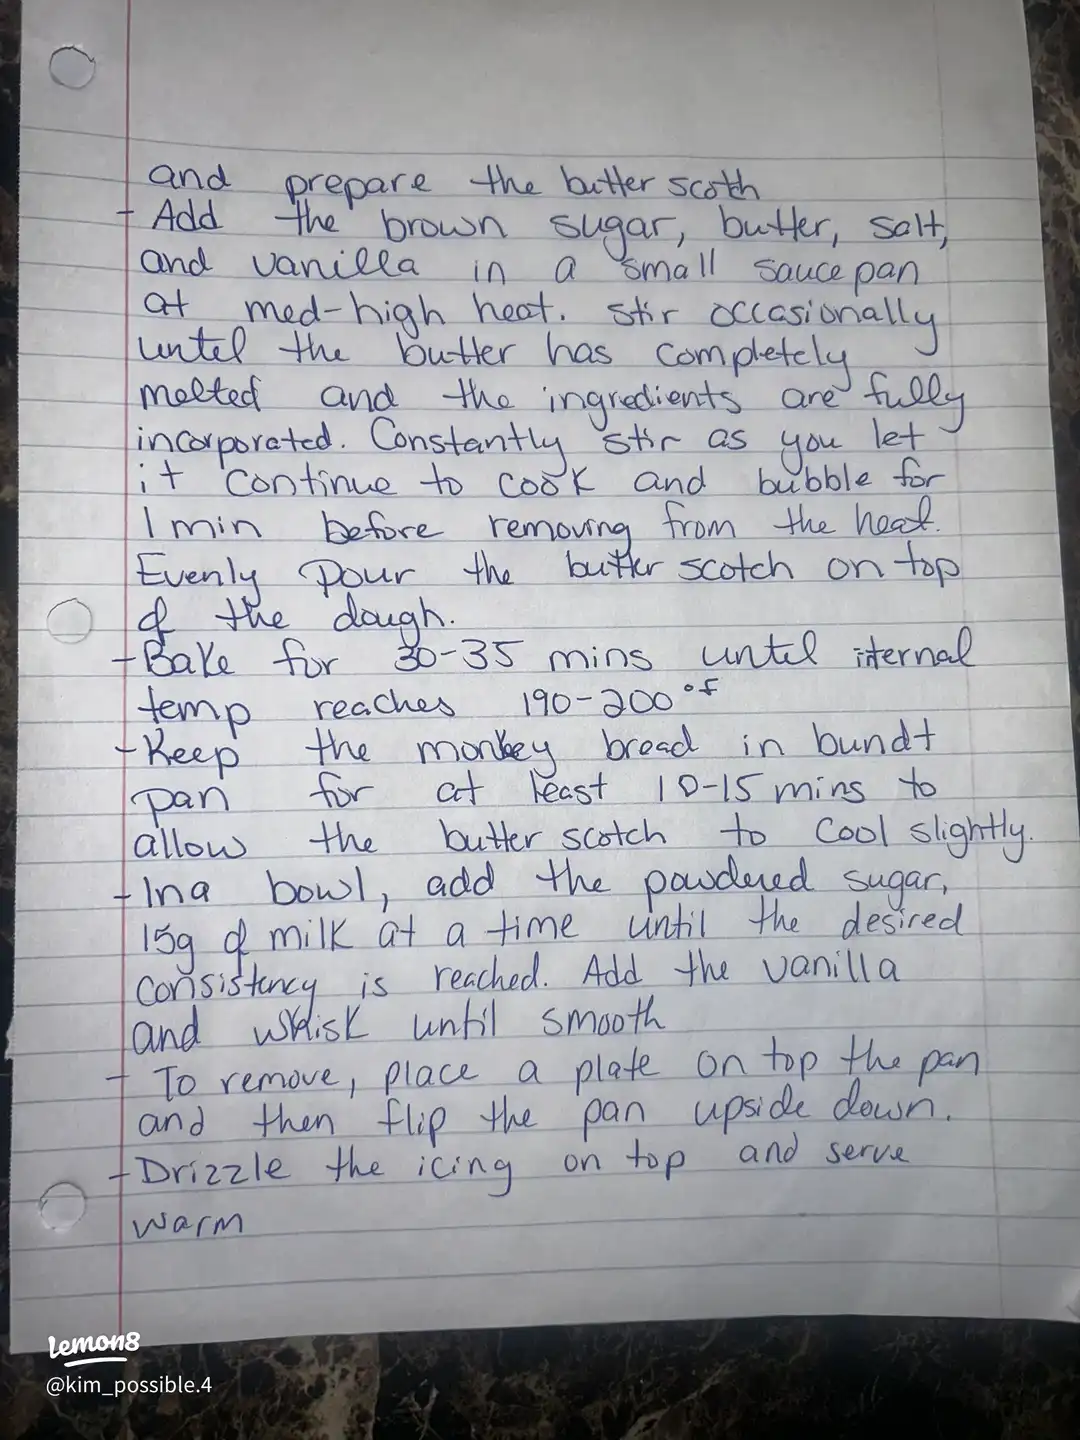 and prepare the butter scoth
- Add the brown sugar, butter, salt,
and vanilla in a small sauce pan
at med-high heat. Stir occasionally
until the butter has completely
melted and the ingredients are fully
incorporated. Constantly stir as you let
it continue to cook and bubble for
1 min before removing from the heat.
Evenly pour the butter scotch on top
of the dough.
- Bake for 30-35 mins until iternal
temp reaches 190-200°F
- Keep the monkey bread in bundt
pan for at least 10-15 mins to
allow the butter scotch to cool slightly.
- In a bowl, add the powdered sugar,
15g of milk at a time until the desired
consistency is reached. Add the vanilla
and whisk until smooth
- To remove, place a plate on top the pan
and then flip the pan upside down.
- Drizzle the icing on top and serve
warm
Lemon8
@kim_possible.4